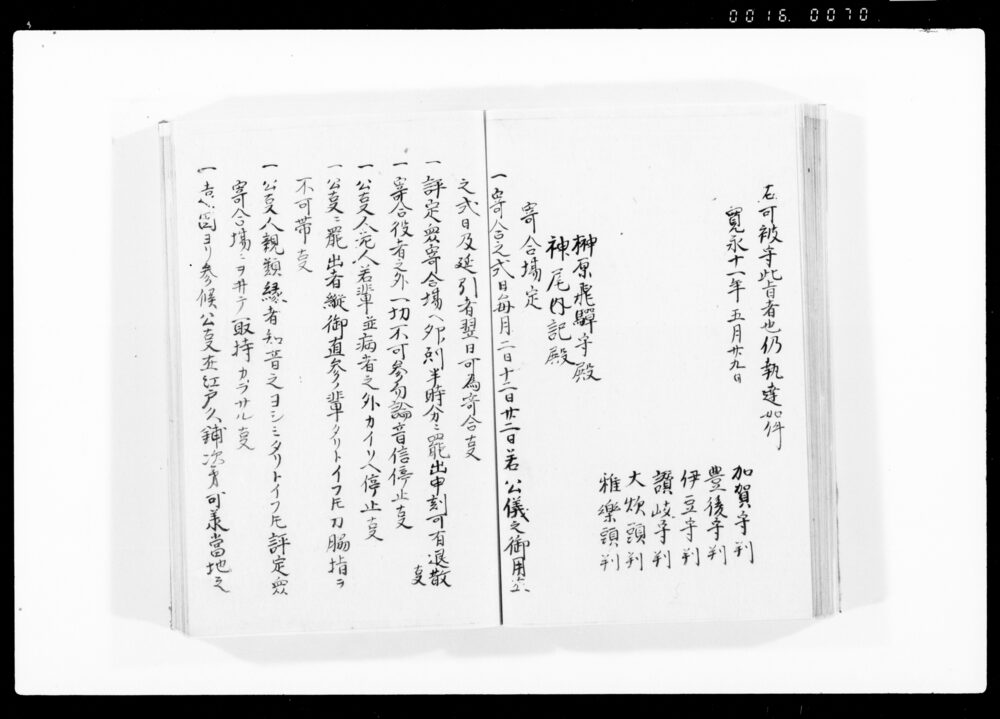 0016.0070
右可被守此旨者也仍執達如件
寛永十一年五月廿九日
加賀守判
豊後守判
伊豆守判
讃岐守判
大炊頭判
雅樂頭判
榊原飛驒守殿
神尾内記殿
寄合場定
一寄合之式日毎月二日十二日廿二日若公儀之御用立
之式日及延引者翌日可為寄合事
一評定衆寄合場ヘ卯刻半時分ニ罷出申刻可有退散事
一寄合役者之外一切不可参勿論音信停止事
一公事人若輩並病者之外カイソヘ停止事
一公事ニ罷出者縦御直参ノ輩タリトイフ𪜈刀脇指ヲ
不可帯事
一公事人親類縁者知音之ヨシミタリトイフ𪜈評定衆
寄合場ニヲ井テ取持カ
サル事
一遠国ヨリ参候公事並江戸久鋪次第可承當地之